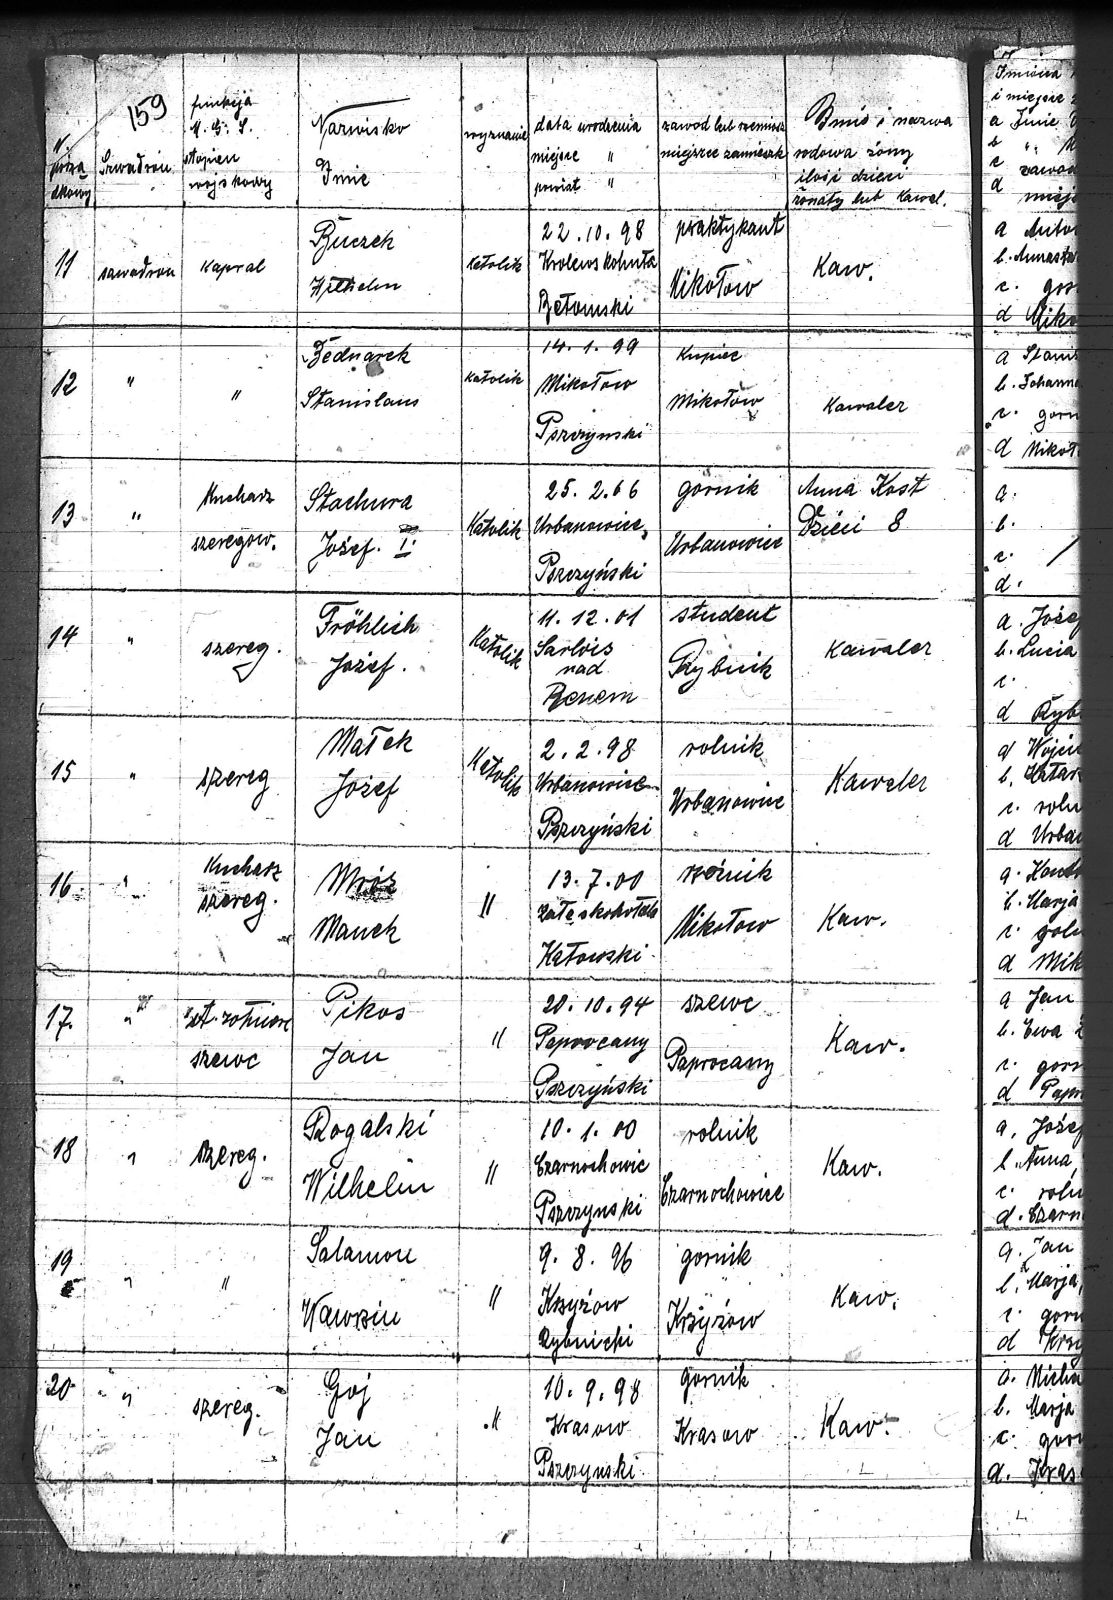 159
N porządkowy
Szwadron
funkcja
M. G. S.
stopien
wojskowy
Nazwisko
Imie
wyznanie
data urodzenia
miejsce "
powiat "
zawód lub rzemiosł
miejsce zamieszk
Imię i nazwa
rodowa żony
ilość dzieci
żonaty lub Kawal.
11
szwadron
Kapral
Buczek
Wilhelm
Katolik
22.10.98
Krolewskohuta
Bytomski
praktykant
Mikołow
Kaw.
12
"
"
Bednarek
Stanislaus
Katolik
14.1.99
Mikołow
Pszczynski
Kupiec
Mikołów
Kawaler
13
"
Kucharz
szeregow.
Stachura
Jożef. I.
Katolik
25.2.66
Urbanowice
Pszczyński
górnik
Urbanowice
Anna Kost
Dzieci 8
14
"
szereg.
Fröhlich
Jożef.
Katolik
11.12.01
Sarlois
nad
Renem
student
Rybnik
Kawaler
15
"
szereg
Małek
Jożef
Katolik
2.2.98
Urbanowice
Pszczyński
rolnik
Urbanowice
Kawaler
16
"
Kucharz
szereg.
Mróz
Manek
"
13.7.00
Katowski
rzeżnik
Mikołow
Kaw.
17.
"
st. żołnierz
szewc
Pikos
Jan
"
20.10.94
Paprocany
Pszczyński
szewc
Paprocany
Kaw.
18
"
szereg.
Rogalski
Wilhelm
"
10.1.00
Czarnochowic
Pszczynski
rolnik
Czarnochowice
Kaw.
19
"
"
Salamon
Wawrzin
"
9.8.96
Krzyżow
Rybnicki
gornik
Krzyżow
Kaw.
20
"
szereg.
Goj
Jan
"
10.9.98
Krasow
Pszczynski
gornik
Krasow
Kaw.
Imiona
i miejsce
a Imie
b "
c zawod
d miejs
a Anto
b. Anasta
c. gor
d Miko
a Stanis
b. Johanna
c. gorn
d Mikoł
a.
b.
c. /
d.
a. Józef
b. Lucia
c.
d Ryb
a Wojci
b. Katar
c. roln
d Urba
a.
b. Marja
c.
d Mik
a Jan
b. Ewa
c. gorn
d Papr
a. Józef
b. Anna
c. roln
d. Czarn
a. Jan
b. Marja,
c. gorn
d Krzy
a. Micha
b. Marja
c. gorn
d. Kras